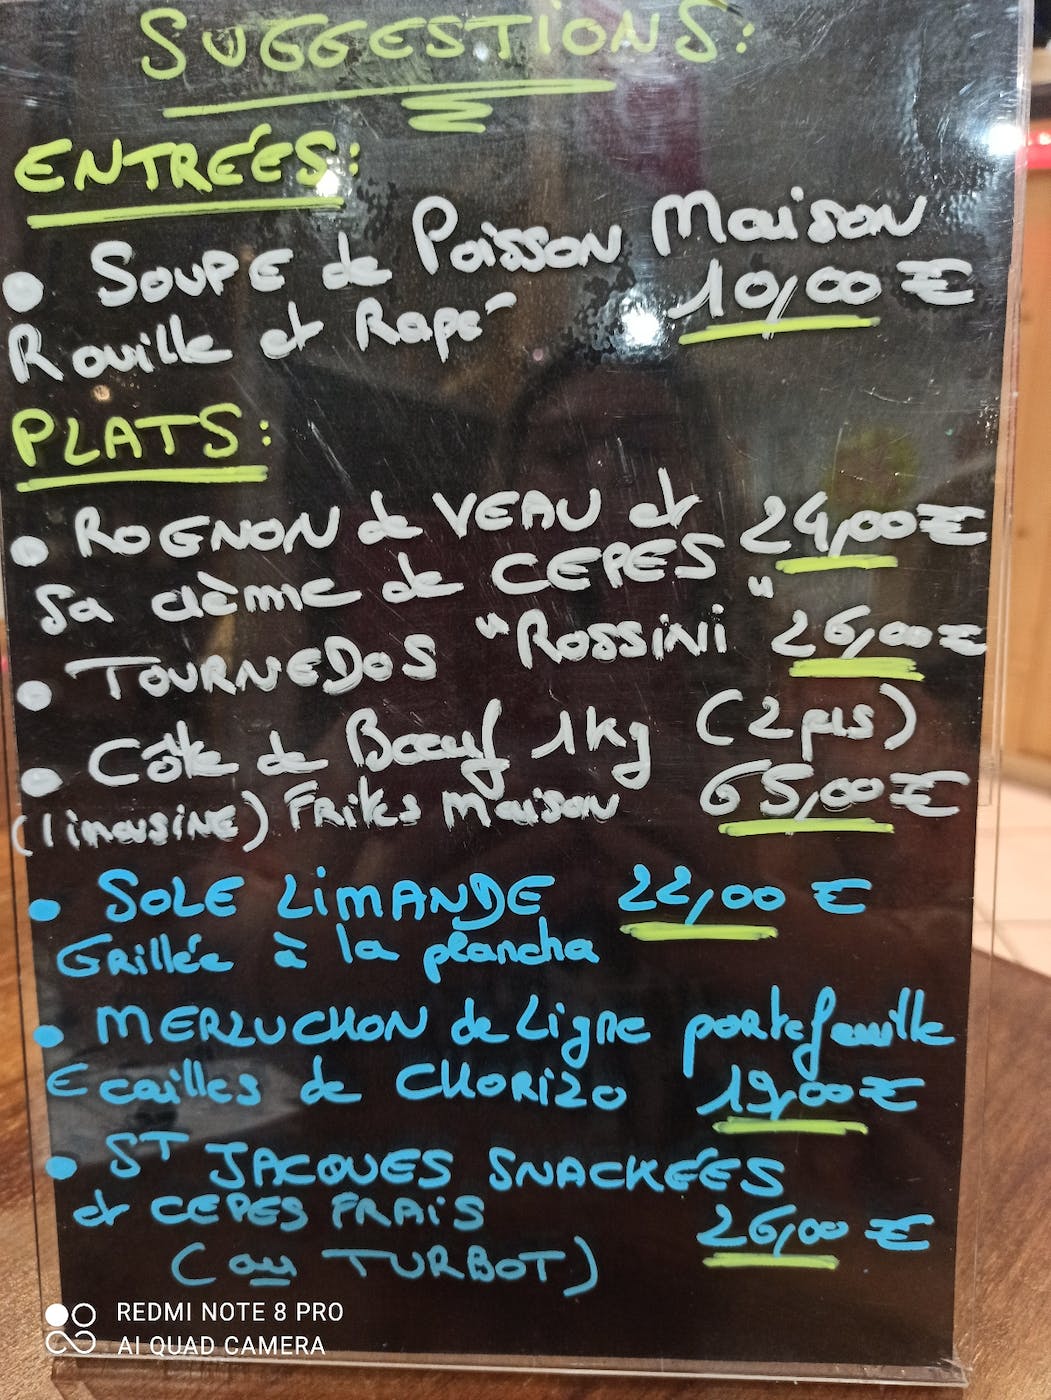 SUGGESTIONS:
ENTRÉES:
• SOUPE de Poisson Maison
Rouille et Rapé 10,00 €
PLATS:
• ROGNON de VEAU et 24,00 €
Sa crème de CEPES
• TOURNEDOS "Rossini" 26,00 €
• Côte de Bœuf 1kg (2 prs)
(limousine) Frites Maison 65,00 €
• SOLE LIMANDE 22,00 €
Grillée à la plancha
• MERLUCHON de Ligne portefeuille
Ecailles de CHORIZO 19,00 €
• ST JACQUES SNACKÉES
et CEPES FRAIS 26,00 €
(au TURBOT)
REDMI NOTE 8 PRO
AI QUAD CAMERA